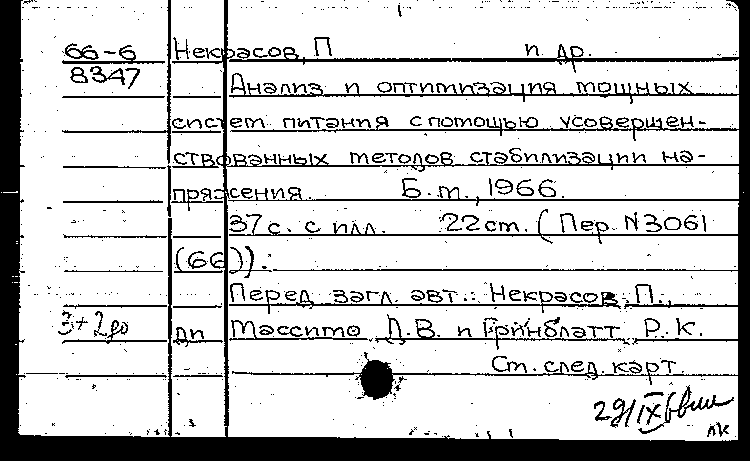 66-6 Некрасов, П и др.
8347
Анализ и оптимизация мощных
систем питания с помощью усовершен-
ствованных методов стабилизации на-
пряжения. Б.м., 1966.
37 с. с илл. 22 см. (Пер. N 3061
(66)).
Перед загл. авт.: Некрасов, П.,
3+2до дп Массимо Д.В. и Гринблатт Р.К.
См. след. карт
29/IX 66
лк